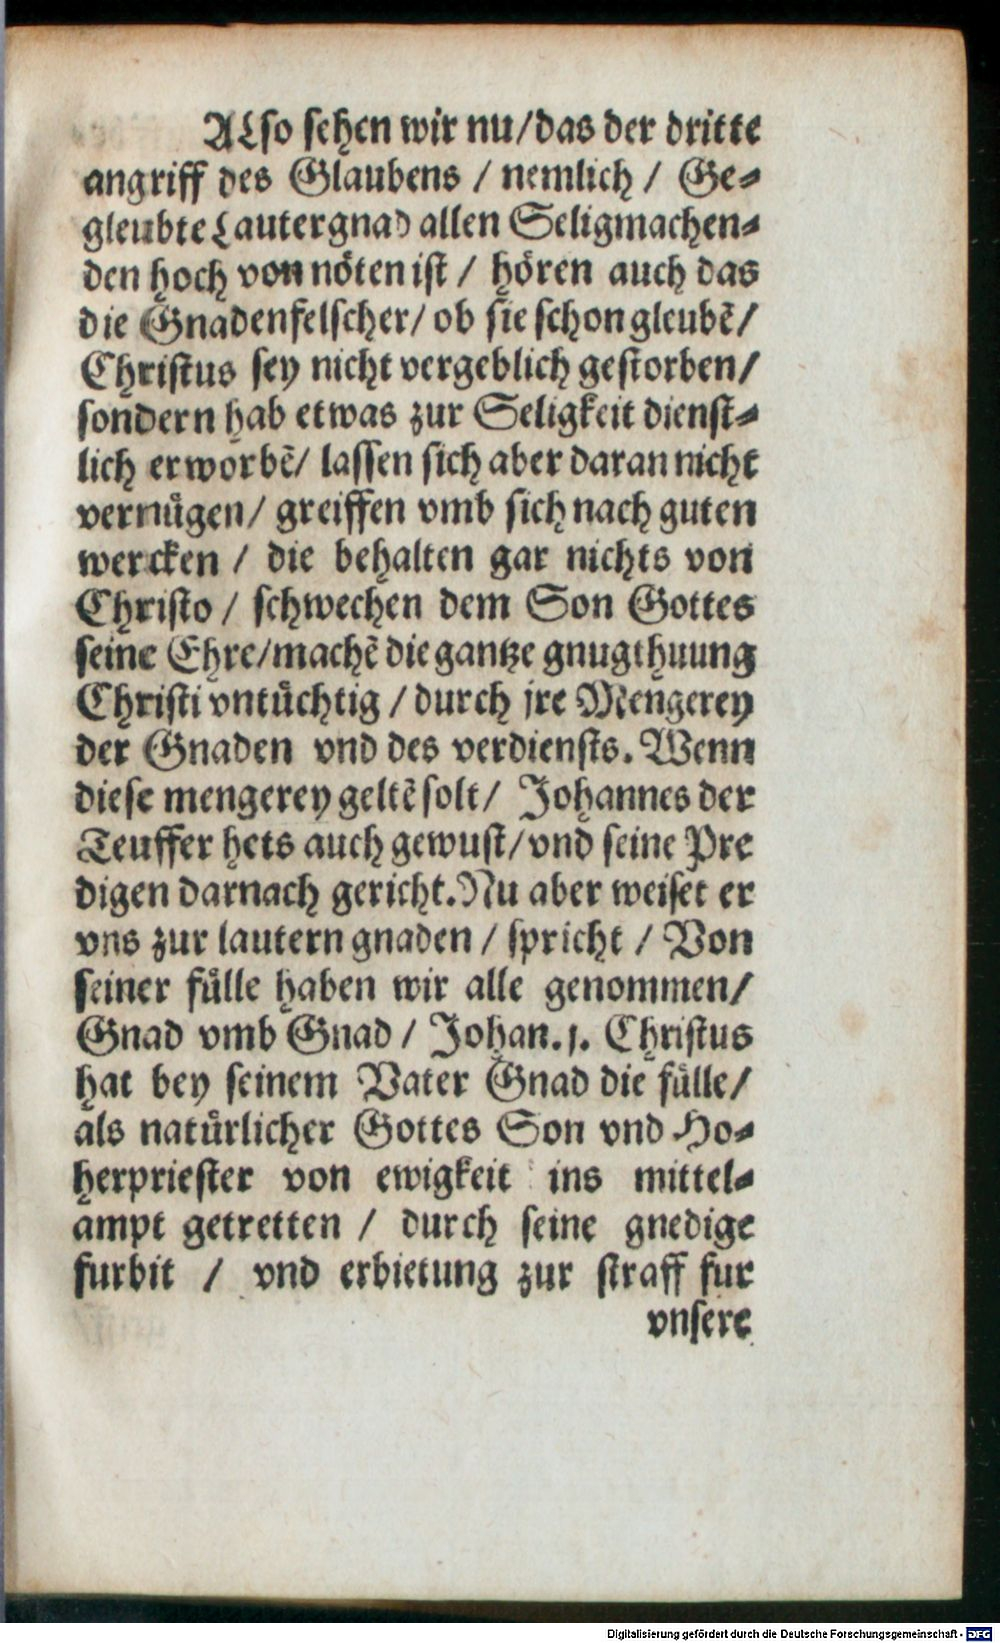 ALso sehen wir nu/das der dritte
angriff des Glaubens / nemlich / Ge-
gleubte Lautergnad allen Seligmachen-
den hoch von nöten ist / hören auch das
die Gnadenfelscher/ ob sie schon gleubẽ/
Christus sey nicht vergeblich gestorben/
sondern hab etwas zur Seligkeit dienst-
lich erworbẽ/ lassen sich aber daran nicht
vernügen/ greiffen vmb sich nach guten
wercken / die behalten gar nichts von
Christo / schwechen dem Son Gottes
seine Ehre/machẽ die gantze gnugthuung
Christi vntüchtig / durch jre Mengerey
der Gnaden vnd des verdiensts. Wenn
diese mengerey geltẽ solt/ Johannes der
Teuffer hets auch gewust/vnd seine Pre
digen darnach gericht. Nu aber weiset er
vns zur lautern gnaden / spricht / Von
seiner fülle haben wir alle genommen/
Gnad vmb Gnad / Johan. j. Christus
hat bey seinem Vater Gnad die fülle/
als natürlicher Gottes Son vnd Ho-
herpriester von ewigkeit ins mittel-
ampt getretten / durch seine gnedige
furbit / vnd erbietung zur straff fur
vnsere
Digitalisierung gefördert durch die Deutsche Forschungsgemeinschaft - DFG